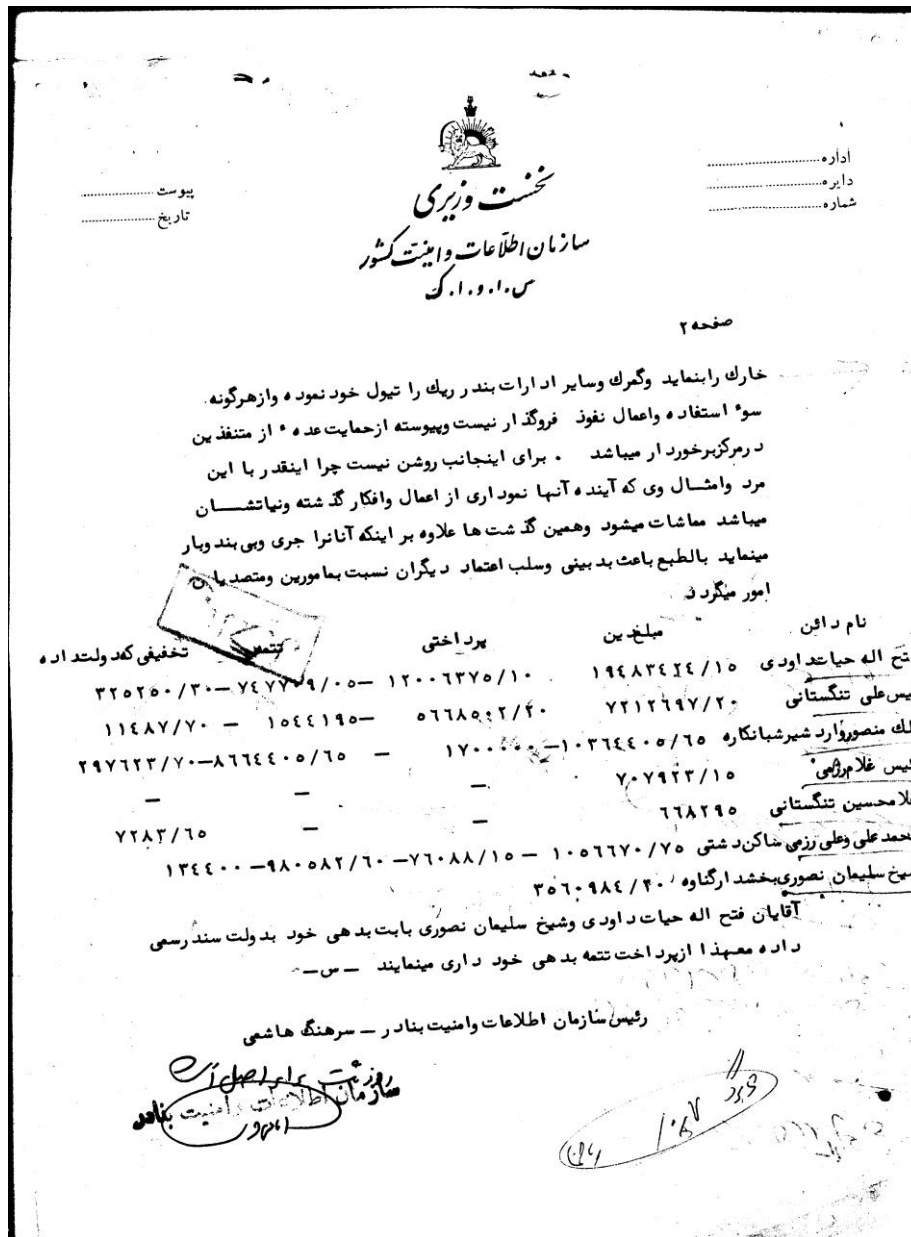 اداره
دایره
شماره
پیوست
تاریخ
نخست وزیری
سازمان اطلاعات و امنیت کشور
س.ا.و.ا.ک
صفحه ۲
خارك رابنماید وگمرك وسایر ادارات بندر ریك را تیول خود نموده وازهرگونه
سوء استفاده واعمال نفوذ فروگذار نیست وپیوسته ازحمایت عدهء از متنفذین
درمرکزبرخوردار میباشد . برای اینجانب روشن نیست چرا اینقدر با این
مرد وامثال وی که آینده آنها نموداری از اعمال وافکار گذشته ونیاتشان
میباشد مماشات میشود وهمین گذشت ها علاوه بر اینکه آنانرا جری وبی بند وبار
مینماید بالطبع باعث بدبینی وسلب اعتماد دیگران نسبت بمامورین ومتصدیان
امور میگردد
نام دائن مبلغ دین پرداختی تتمه تخفیفی که دولت داده
فتح اله حیات داودی ۱۹۴۸۳۴۲۴/۱۵ ۱۲۰۰۶۳۷۵/۱۰ — ۳۲۵۲۵۰/۳۰
رئیس علی تنگستانی ۷۲۱۲۶۹۷/۲۰ — ۱۵۴۴۱۹۵ — ۱۱۴۸۷/۷۰
ملك منصورواردشیرشبانکاره ۱۰۳۶۴۴۰۵/۶۵ — ۱۷۰۰۰۰۰ — ۸۶۶۴۴۰۵/۶۵ — ۲۹۷۶۲۳/۷۰
رئیس غلام رزمی ۷۰۷۹۲۳/۱۵ — — —
غلامحسین تنگستانی ۶۶۸۲۹۵ — — ۷۲۸۳/۶۵
محمدعلی وعلی رزمی ساکن دشتی ۱۰۵۶۶۷۰/۷۵ — ۷۶۰۸۸/۱۵ — ۹۸۰۵۸۲/۶۰ — ۱۳۴۴۰۰
شیخ سلیمان نصوری بخشدارگناوه ۳۵۶۰۹۸۴/۴۰
آقایان فتح اله حیات داودی وشیخ سلیمان نصوری بابت بدهی خود بدولت سند رسمی
داده معهذا ازپرداخت تتمه بدهی خود داری مینمایند — س—
رئیس سازمان اطلاعات وامنیت بنادر — سرهنگ هاشمی
رونوشت برابر اصل است
سازمان اطلاعات و امنیت بنادر